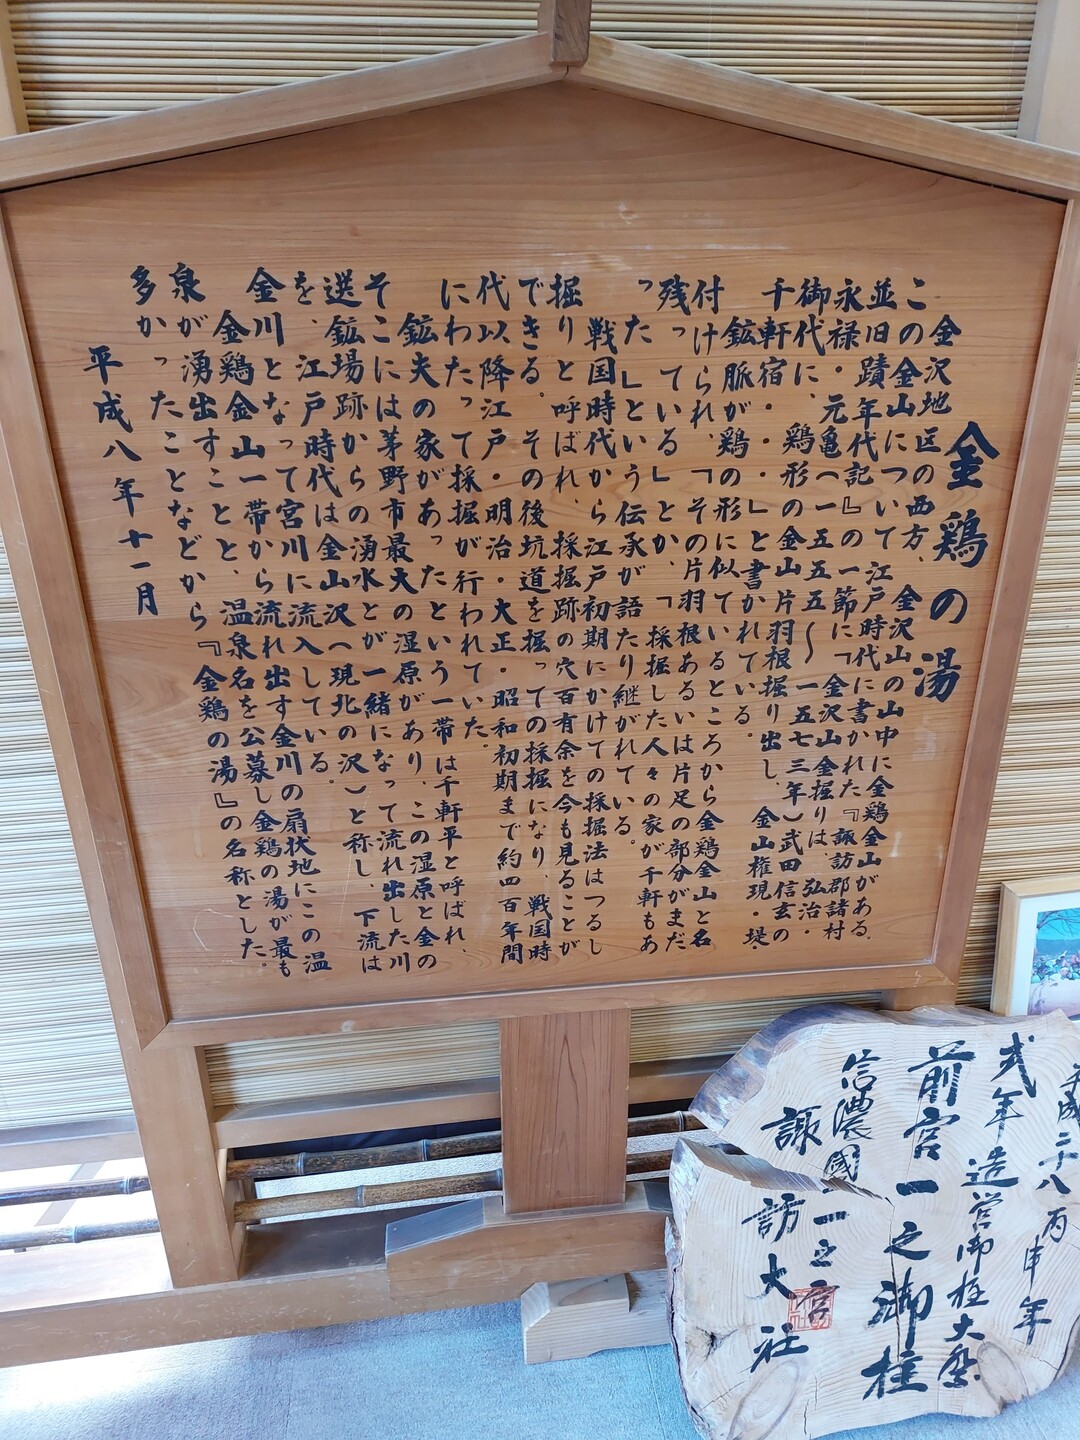 金鶏の湯
金沢地区の西方、金沢山の山中に金鶏金山がある。
この金山について、江戸時代に書かれた『諏訪郡諸村
並旧蹟年代記』の一節に「金沢山金掘りは、弘治・
永禄・元亀(一五五五〜一五七三年)武田信玄の
御代に、鶏形の金山片羽根掘り出し、金山権現・堤・
千軒宿・・・」と書かれている。
鉱脈が鶏の形に似ているところから金鶏金山と名
付けられ、「その片羽根あるいは片足の部分がまだ
残っている」とか、「採掘した人々の家が千軒もあ
った」という伝承が語たり継がれている。
戦国時代から江戸初期にかけての採掘法はつるし
掘りと呼ばれ、採掘跡の穴百有余を今も見ることが
できる。その後坑道を掘っての採掘になり、戦国時
代以降江戸・明治・大正・昭和初期まで約四百年間
にわたって採掘が行われていた。
鉱夫の家があったという一帯は千軒平と呼ばれ、
そこには茅野市最大の湿原があり、この湿原と金の
選鉱場跡からの湧水とが一緒になって流れ出した川
を、江戸時代は金山沢(現北の沢)と称し、下流は
金川となって宮川に流入している。
金鶏金山一帯から流れ出す金川の扇状地にこの温
泉が湧出すことと、温泉名を公募し金鶏の湯が最も
多かったことなどから『金鶏の湯』の名称とした。
平成八年十一月
平成二十八丙申年
式年造営御柱大祭
前宮一之御柱
信濃國一之宮
諏訪大社